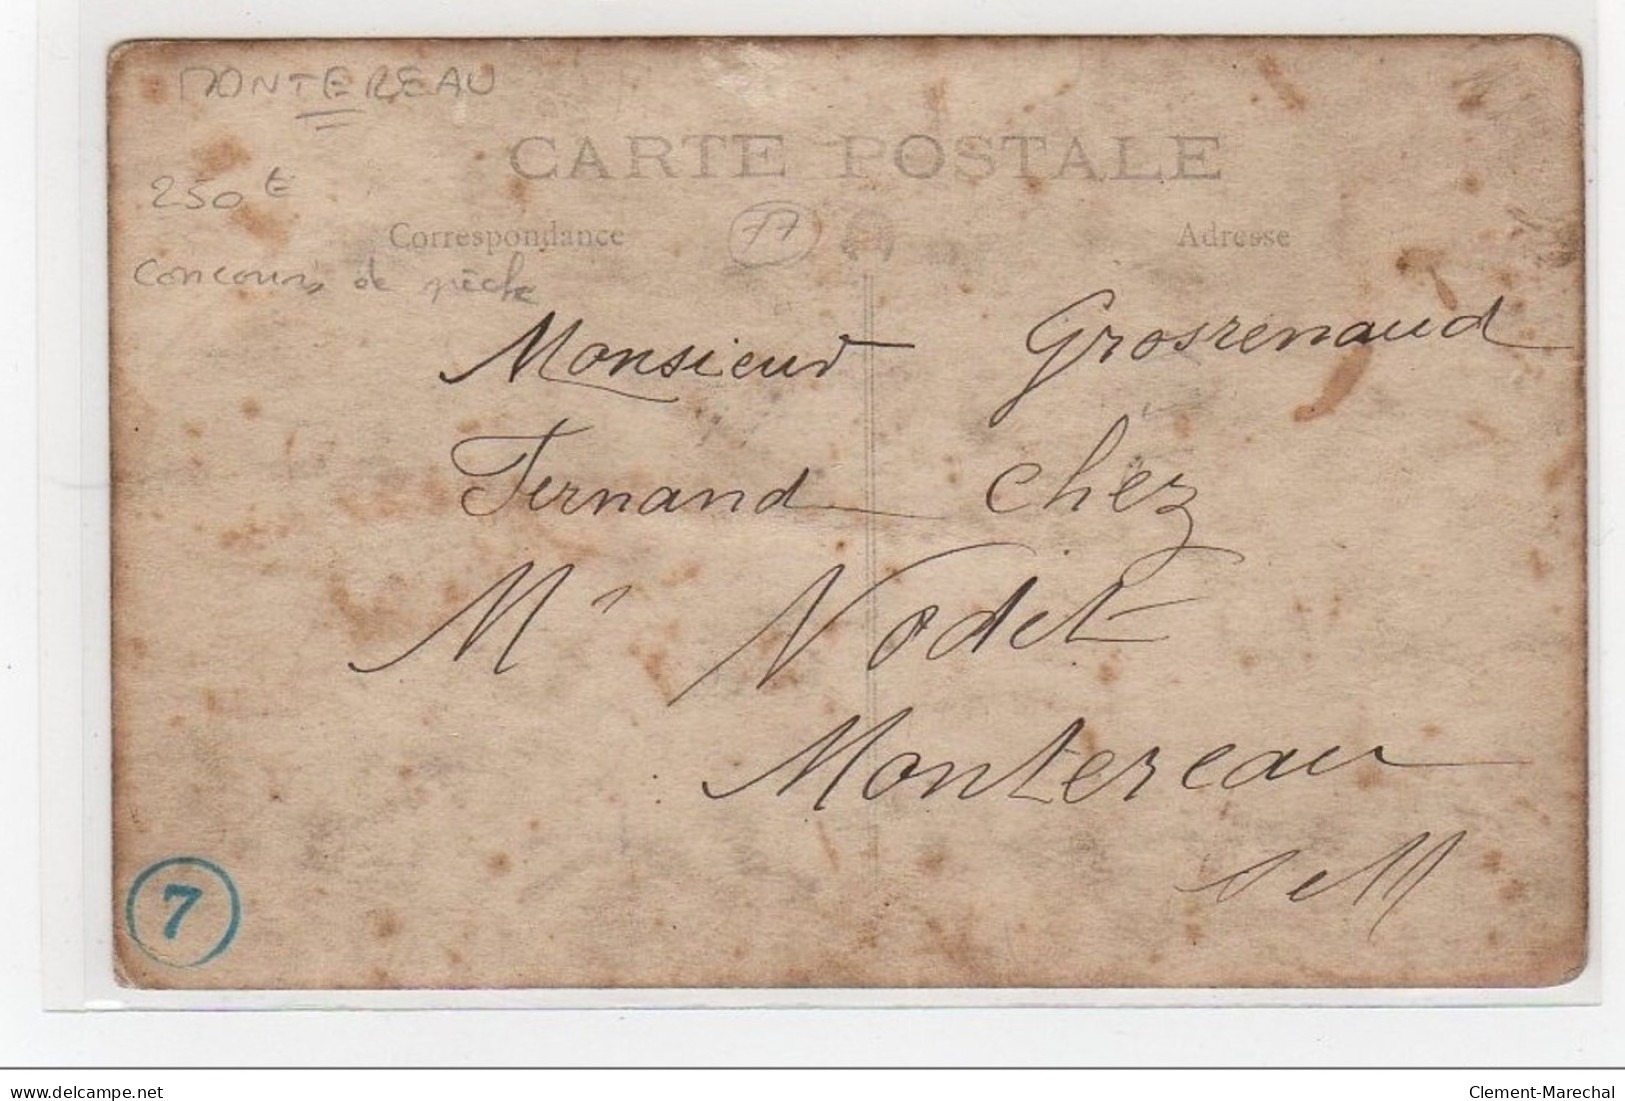 MONTEREAU
CARTE POSTALE
250€
Correspondance 77 Adresse
Concours de pêche
Monsieur Grosrenaud
Fernand chez
Mr Nodet
Montereau
S et M
7
delcampe.net
Clement-Marechal